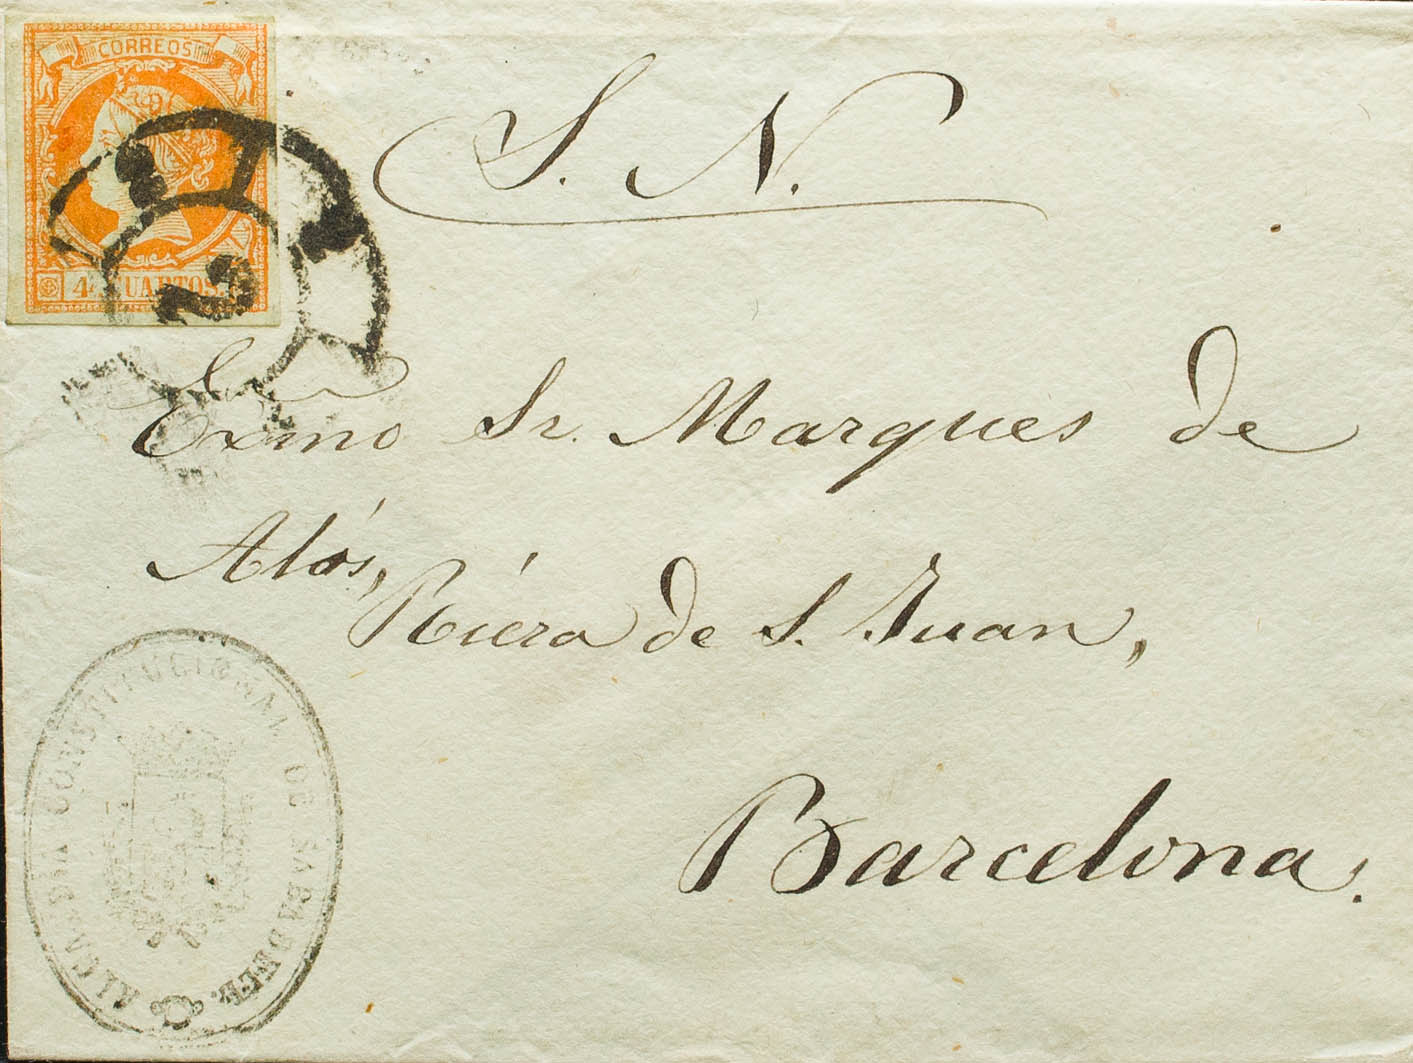 CORREOS
4 CUARTOS.
2
S. N.
Exmo Sr. Marques de
Alós,
Riera de S. Juan,
Barcelona.
ALCALDIA CONSTITUCIONAL DE SABADELL.